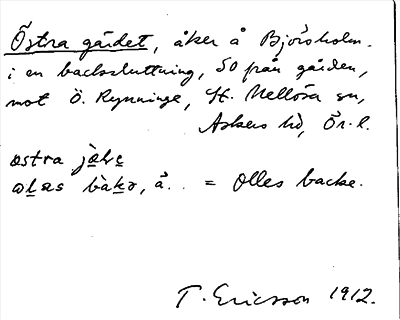 Östra gärdet, åker å Björsholm.
i en backsluttning, SO från gården,
mot Ö. Rynninge, St. Mellösa sn,
Askers hd, Ör. l.
östra
å. = Olles backe.
T. Ericsson 1912.